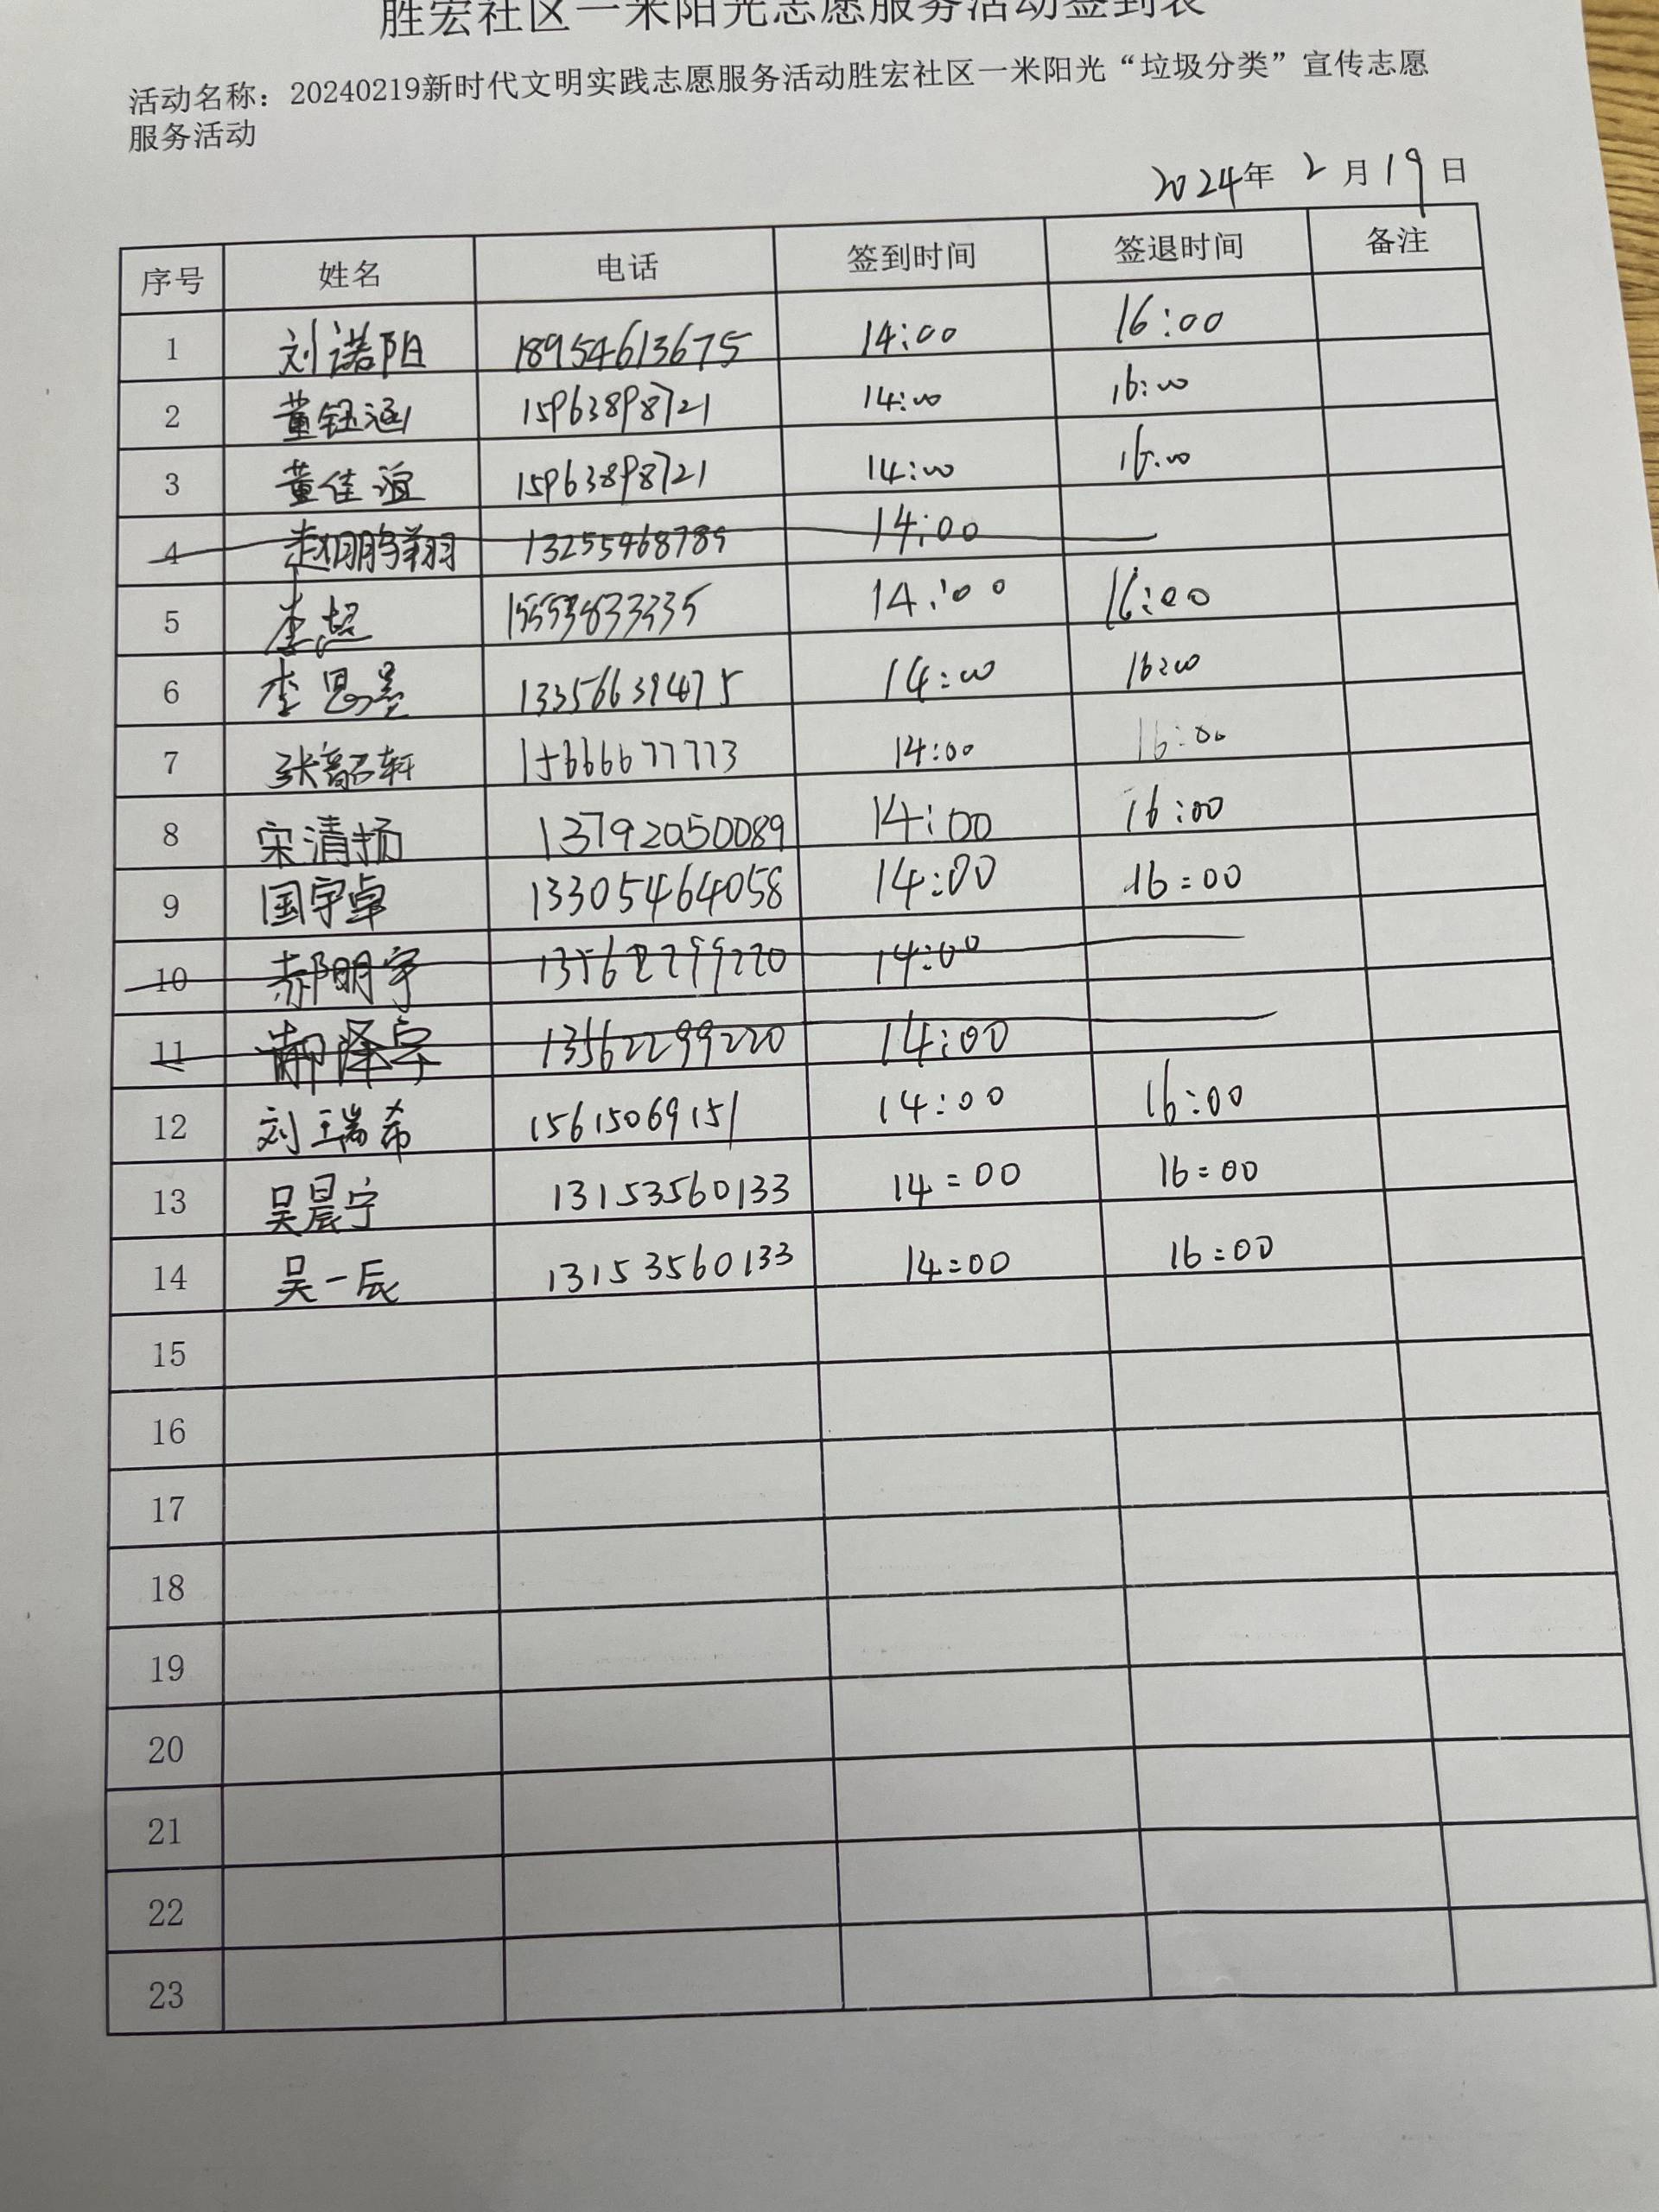 胜宏社区一米阳光志愿服务活动签到表
活动名称：20240219新时代文明实践志愿服务活动胜宏社区一米阳光“垃圾分类”宣传志愿
服务活动
2024年 2 月 19 日
序号 姓名 电话 签到时间 签退时间 备注
1 刘诺阳 18954613675 14:00 16:00
2 董钰涵 15963898721 14:00 16:00
3 董佳谊 15963898721 14:00 16:00
4 赵鹏翔 13255468789 14:00
5 李 14:00 16:00
6 李思墨 13356639475 14:00 16:00
7 张韶轩 15666677773 14:00 16:00
8 宋清扬 13792050089 14:00 16:00
9 国宇卓 13305464058 14:00 16:00
10 郝明宇 13562299220 14:00
11 郝泽宇 13562299220 14:00
12 刘瑞希 15615069151 14:00 16:00
13 吴晨宁 13153560133 14:00 16:00
14 吴一辰 13153560133 14:00 16:00
15
16
17
18
19
20
21
22
23